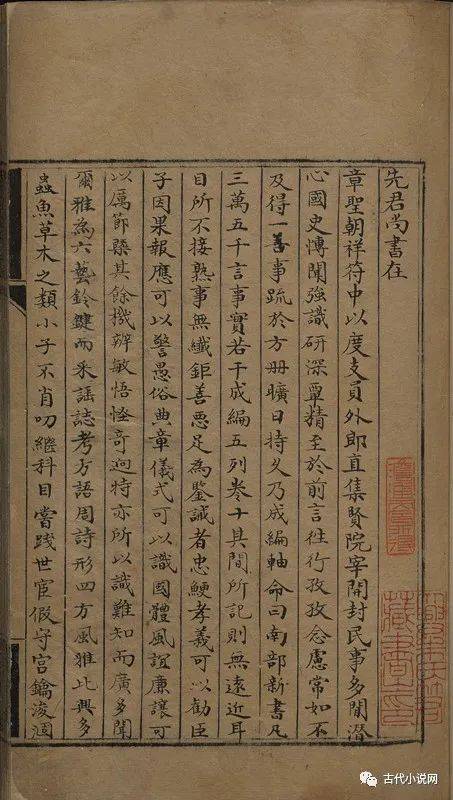 先君尚書在
章聖朝祥符中以度支員外郎直集賢院宰開封民事多閒潛
心國史博聞強識研深覃精至於前言往行孜孜念慮常如不
及得一善事疏於方冊曠日持久乃成編軸命曰南部新書凡
三萬五千言事實若干成編五列卷十其間所記則無遠近耳
目所不接熟事無纖鉅善惡足為鑒誡者忠鯁孝義可以勸臣
子因果報應可以警愚俗典章儀式可以識國體風誼廉讓可
以厲節槩其餘機辨敏悟怪奇迥特亦所以識難知而廣多聞
爾雅為六藝鈐鍵而采謡誌考方語周詩形四方風雅比興多
蟲魚草木之類小子不肖叨繼科目嘗踐世宦假守宮鑰浚涸
藏書
古代小说网